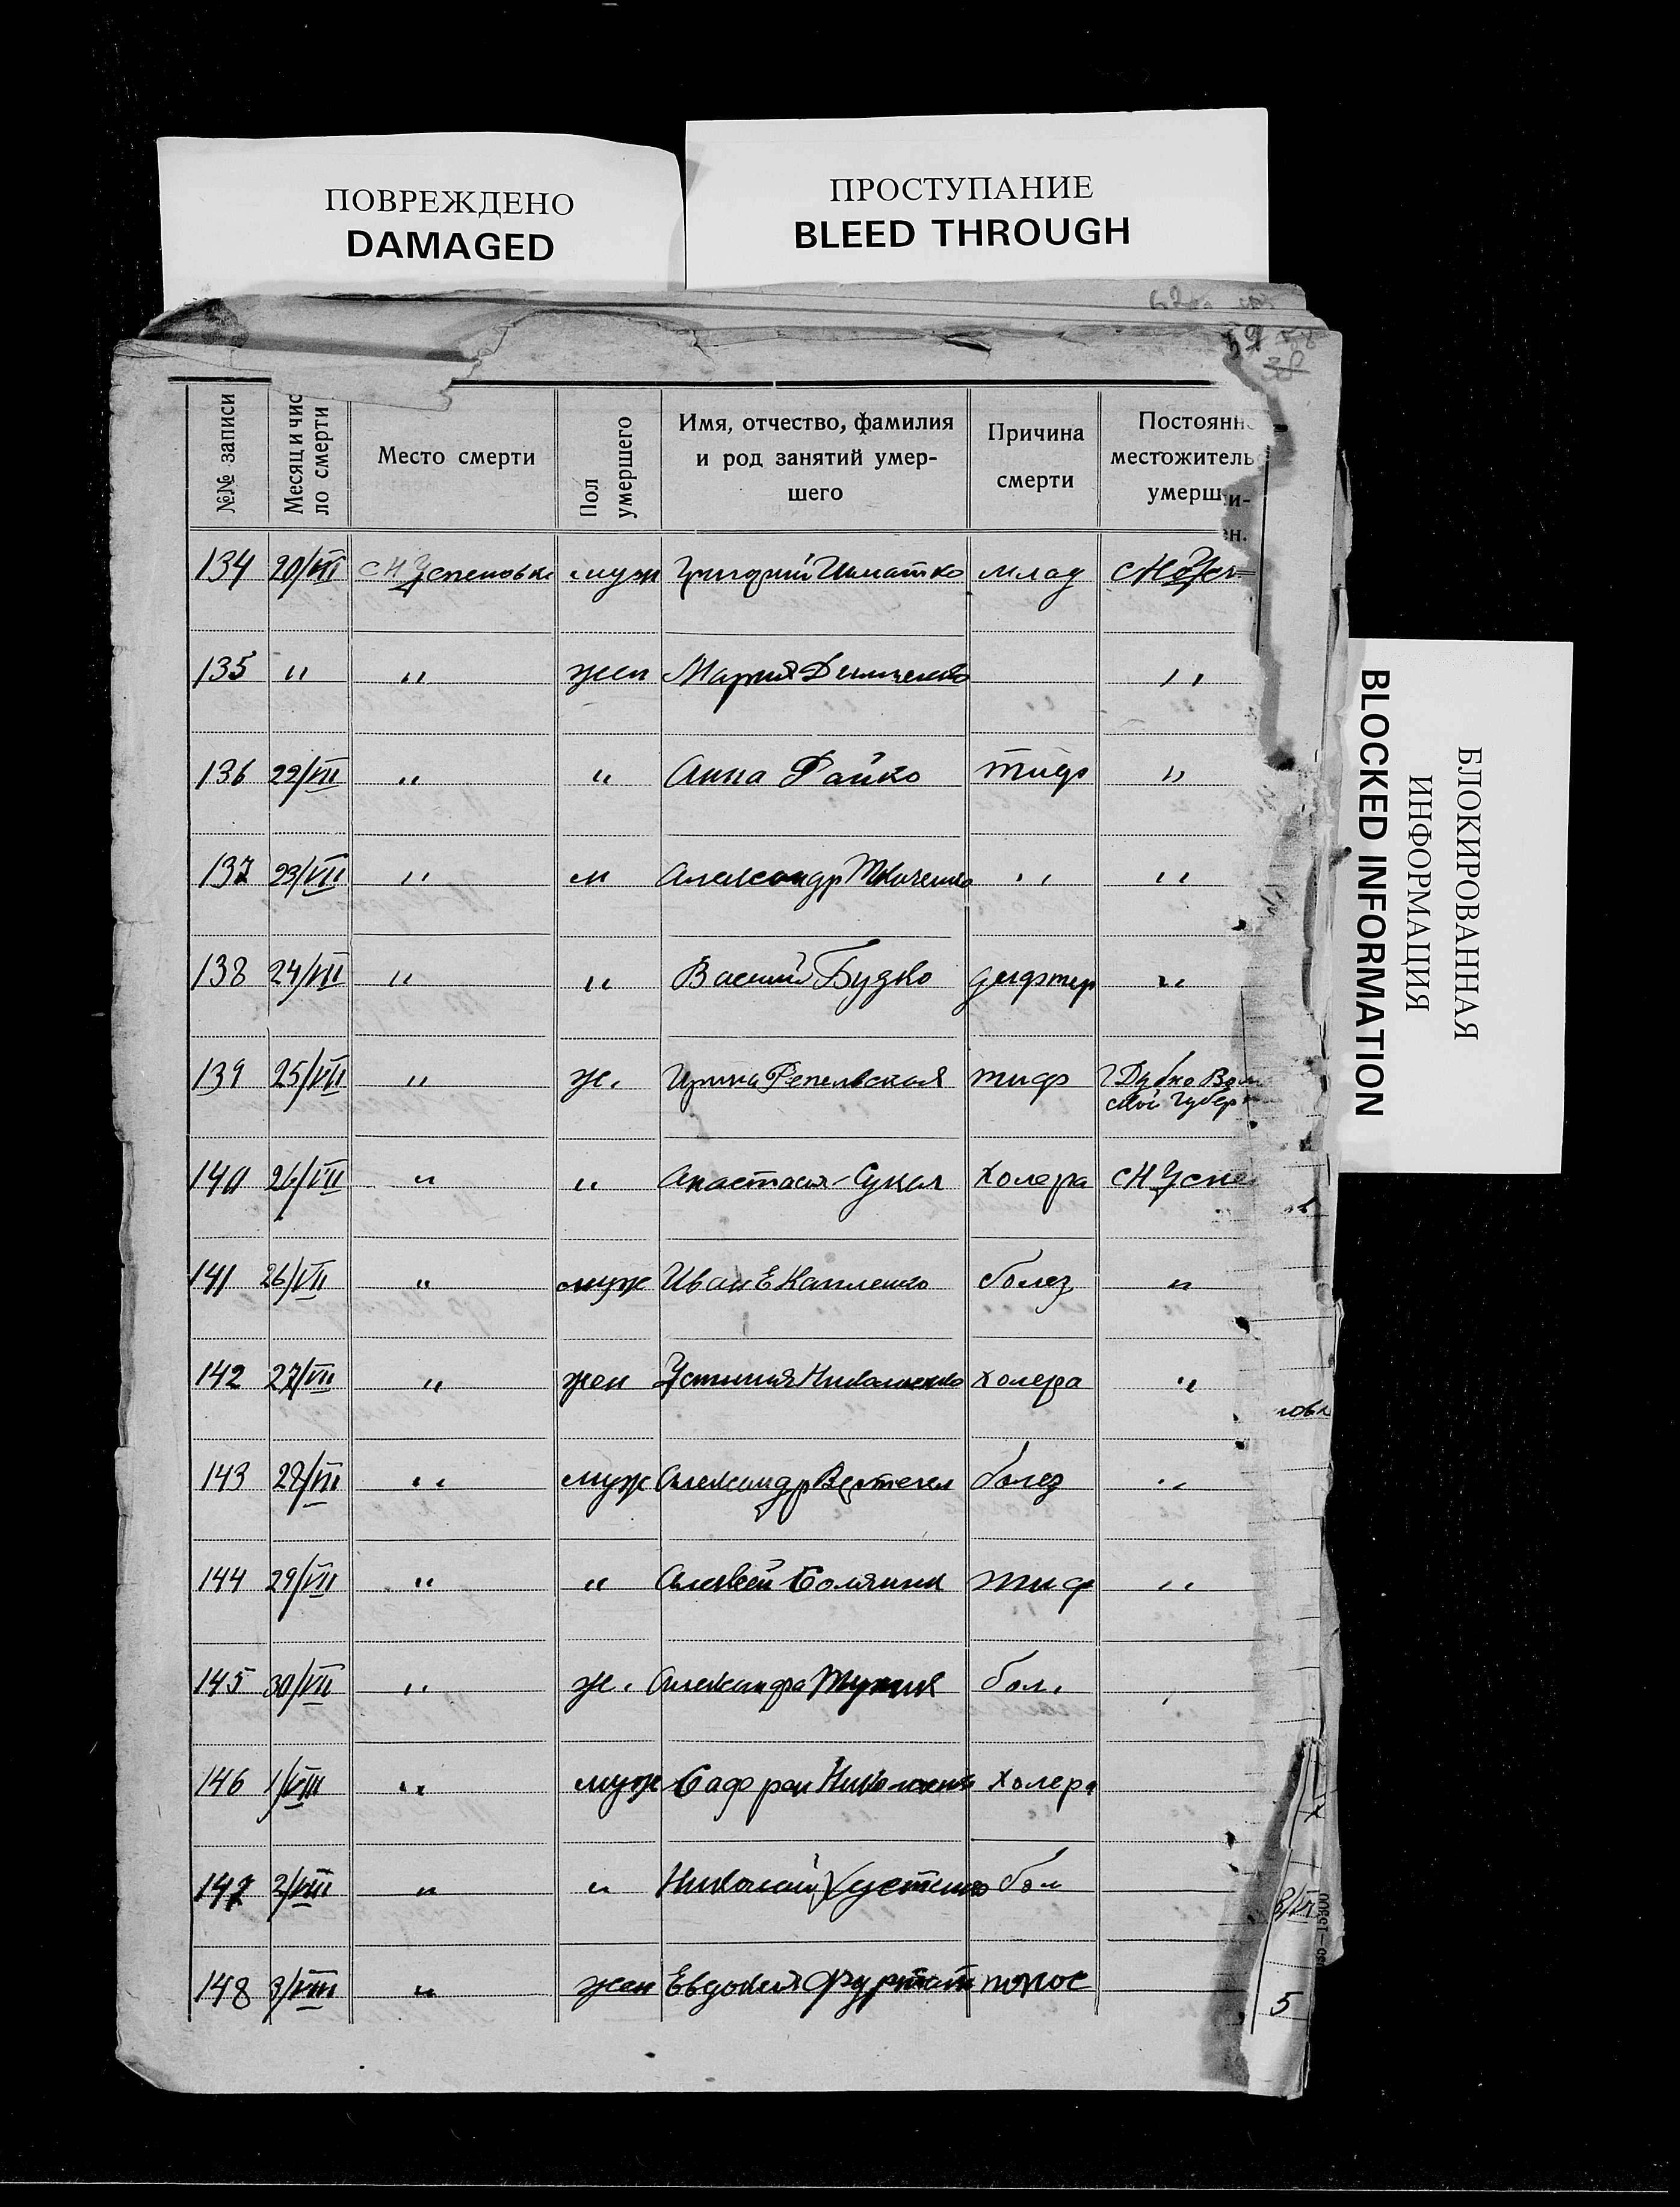 ПОВРЕЖДЕНО
DAMAGED
ПРОСТУПАНИЕ
BLEED THROUGH
БЛОКИРОВАННАЯ
ИНФОРМАЦИЯ
BLOCKED INFORMATION
№№ записи
Месяц и чис
ло смерти
Место смерти
Пол
умершего
Имя, отчество, фамилия
и род занятий умер-
шего
Причина
смерти
Постоянн
местожитель
умерш
134 20/VII С Н Успеновка муж Григорий Игнатко млад С Н Усп
135 " " жен Мария "
136 22/VII " " Анна Файко тиф "
137 23/VII " м Александр Ткаченко " "
138 24/VII " " Василий Будко дифтер "
139 25/VII " ж. Ирина Репельвская тиф г Дубно Вол
ской Губер
140 26/VII " " Анастасия холера С Н Успе
141 26/VII " муж Иван Е Капленко болез "
142 27/VII " жен Устиния Николаенко холера "
143 28/VII " муж Александр Вертегел болез "
144 29/VII " " Алексей тиф "
145 30/VII " ж. Александра бол.
146 1/VIII " муж Сафрон Николаенко холера
147 2/VIII " " Николай Хустенко бол
148 3/VIII " жен Евдокия понос
5